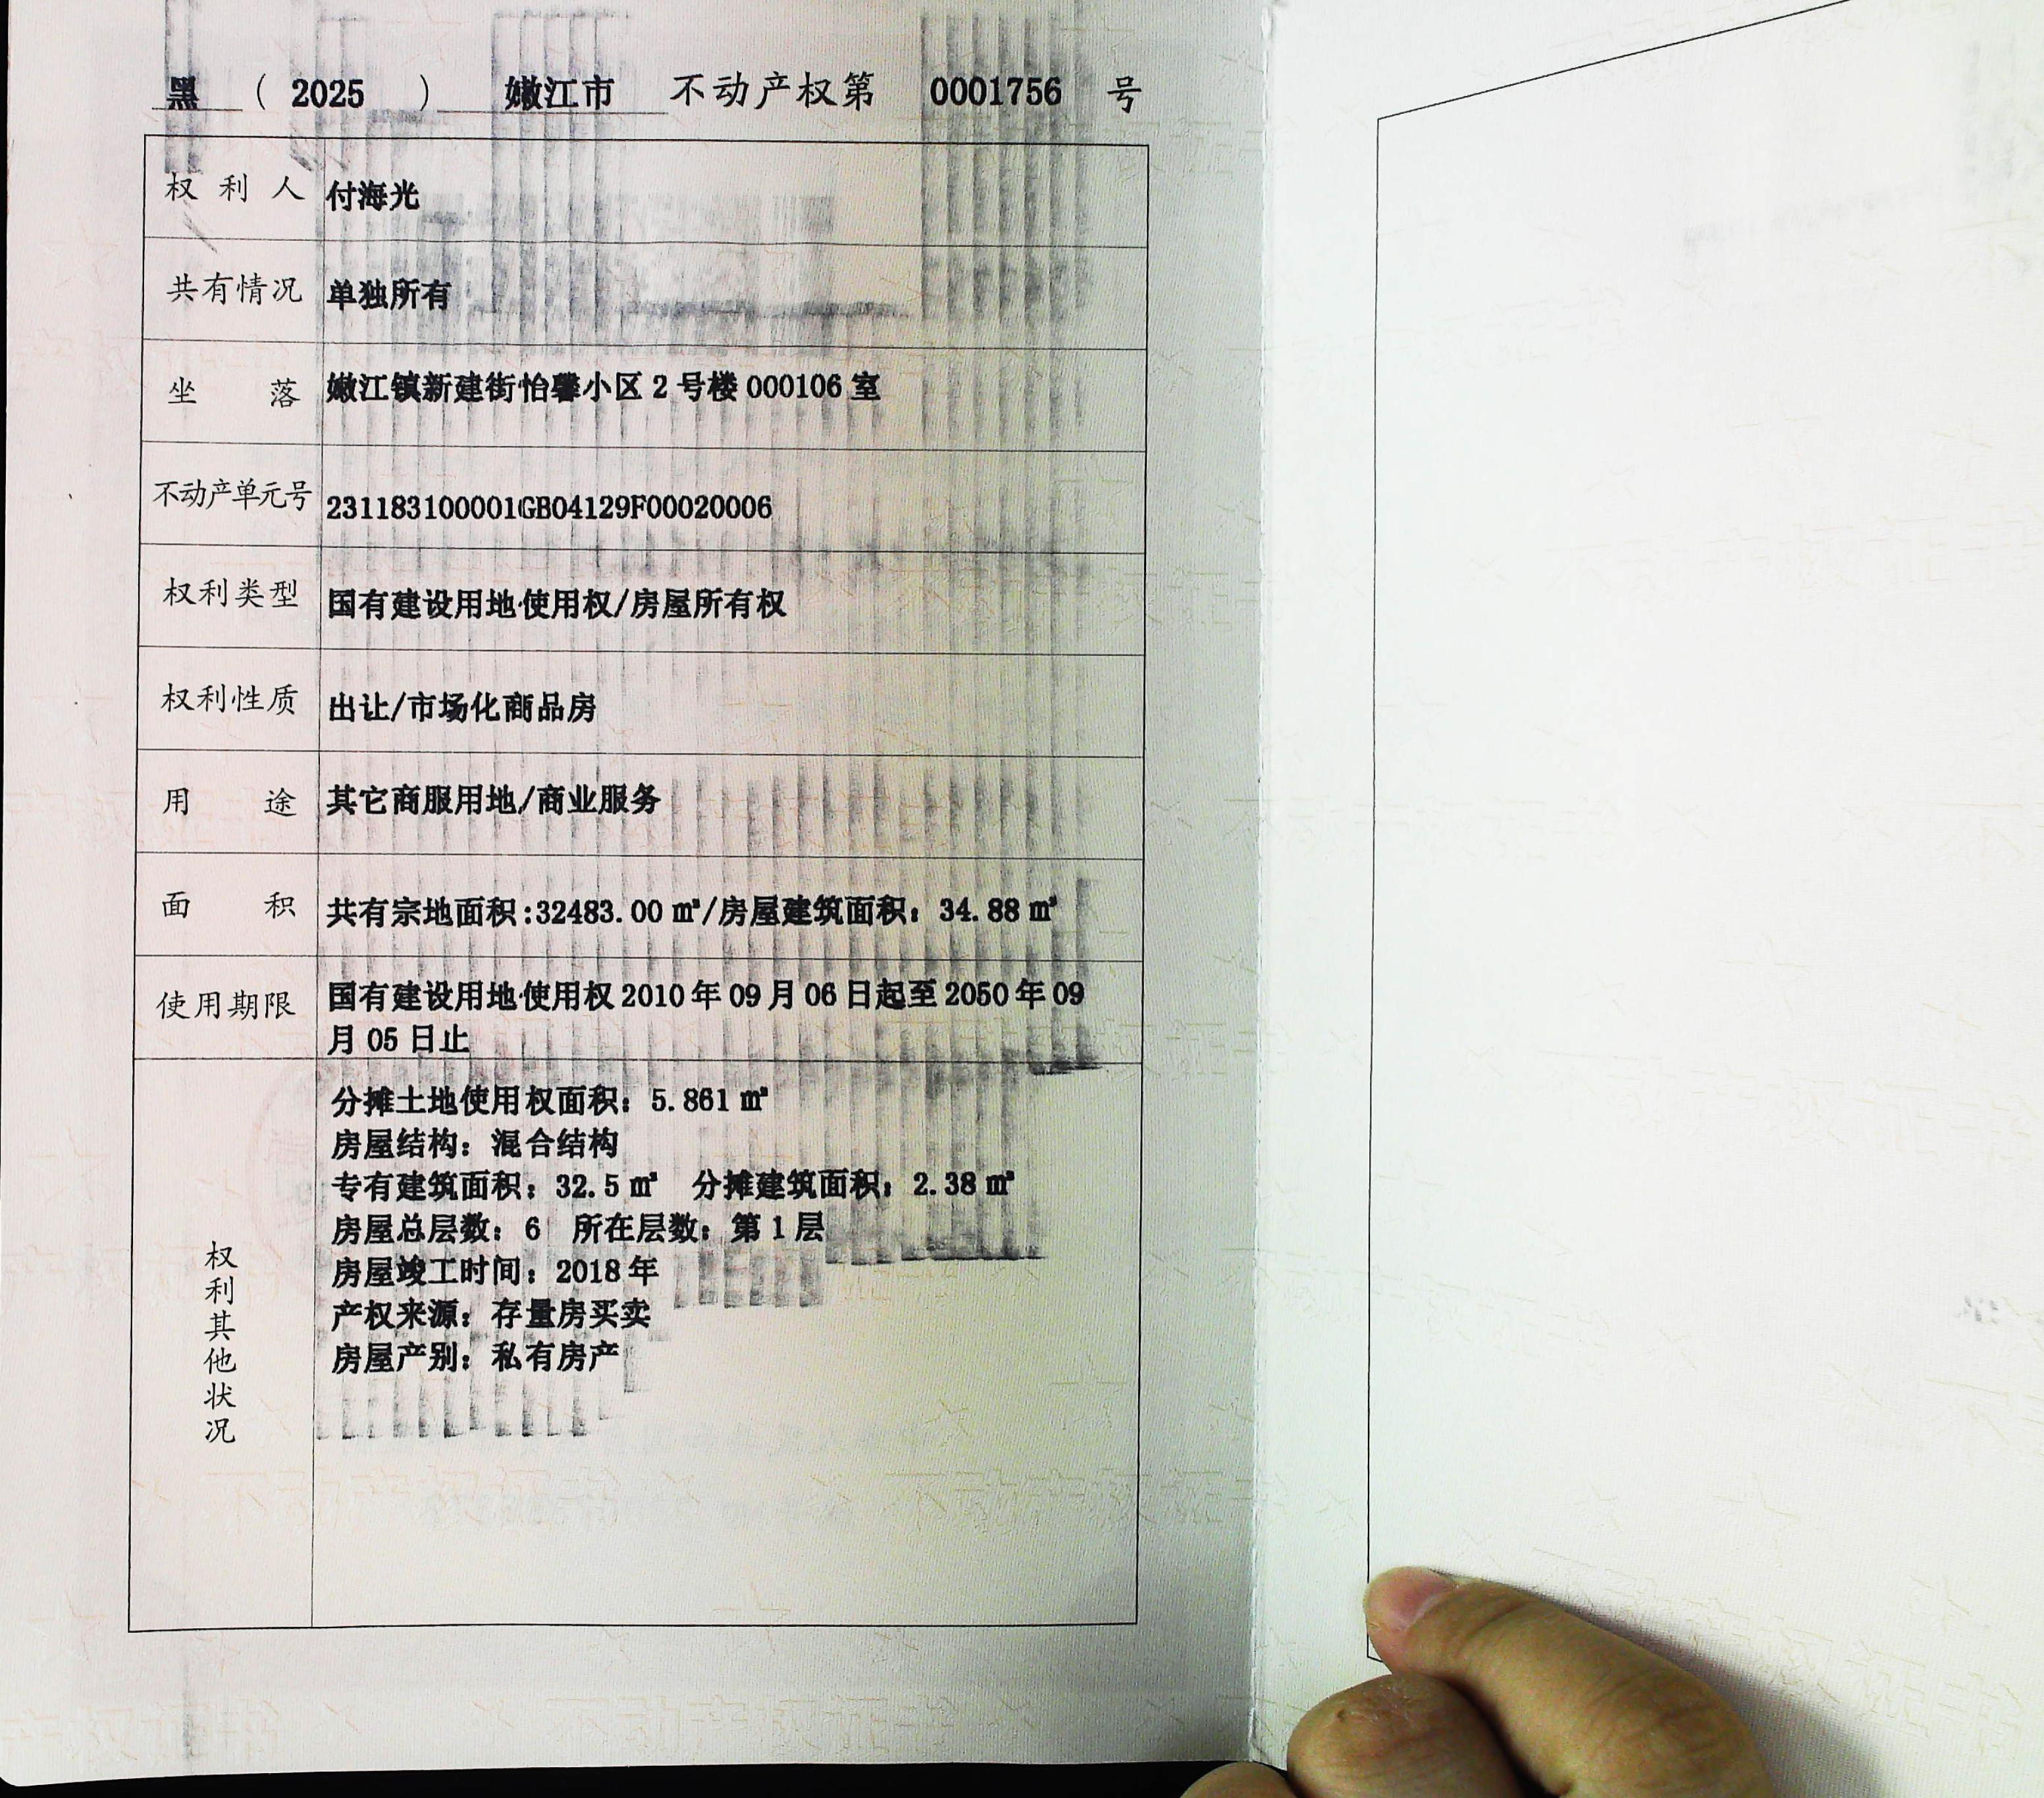 黑 ( 2025 ) 嫩江市 不动产权第 0001756 号
权利人 付海光
共有情况 单独所有
坐落 嫩江镇新建街怡馨小区 2 号楼 000106 室
不动产单元号 231183100001GB04129F00020006
权利类型 国有建设用地使用权/房屋所有权
权利性质 出让/市场化商品房
用途 其它商服用地/商业服务
面积 共有宗地面积:32483.00 ㎡/房屋建筑面积：34.88 ㎡
使用期限 国有建设用地使用权 2010 年 09 月 06 日起至 2050 年 09
月 05 日止
权利其他状况
分摊土地使用权面积：5.861 ㎡
房屋结构：混合结构
专有建筑面积：32.5 ㎡ 分摊建筑面积：2.38 ㎡
房屋总层数：6 所在层数：第 1 层
房屋竣工时间：2018 年
产权来源：存量房买卖
房屋产别：私有房产